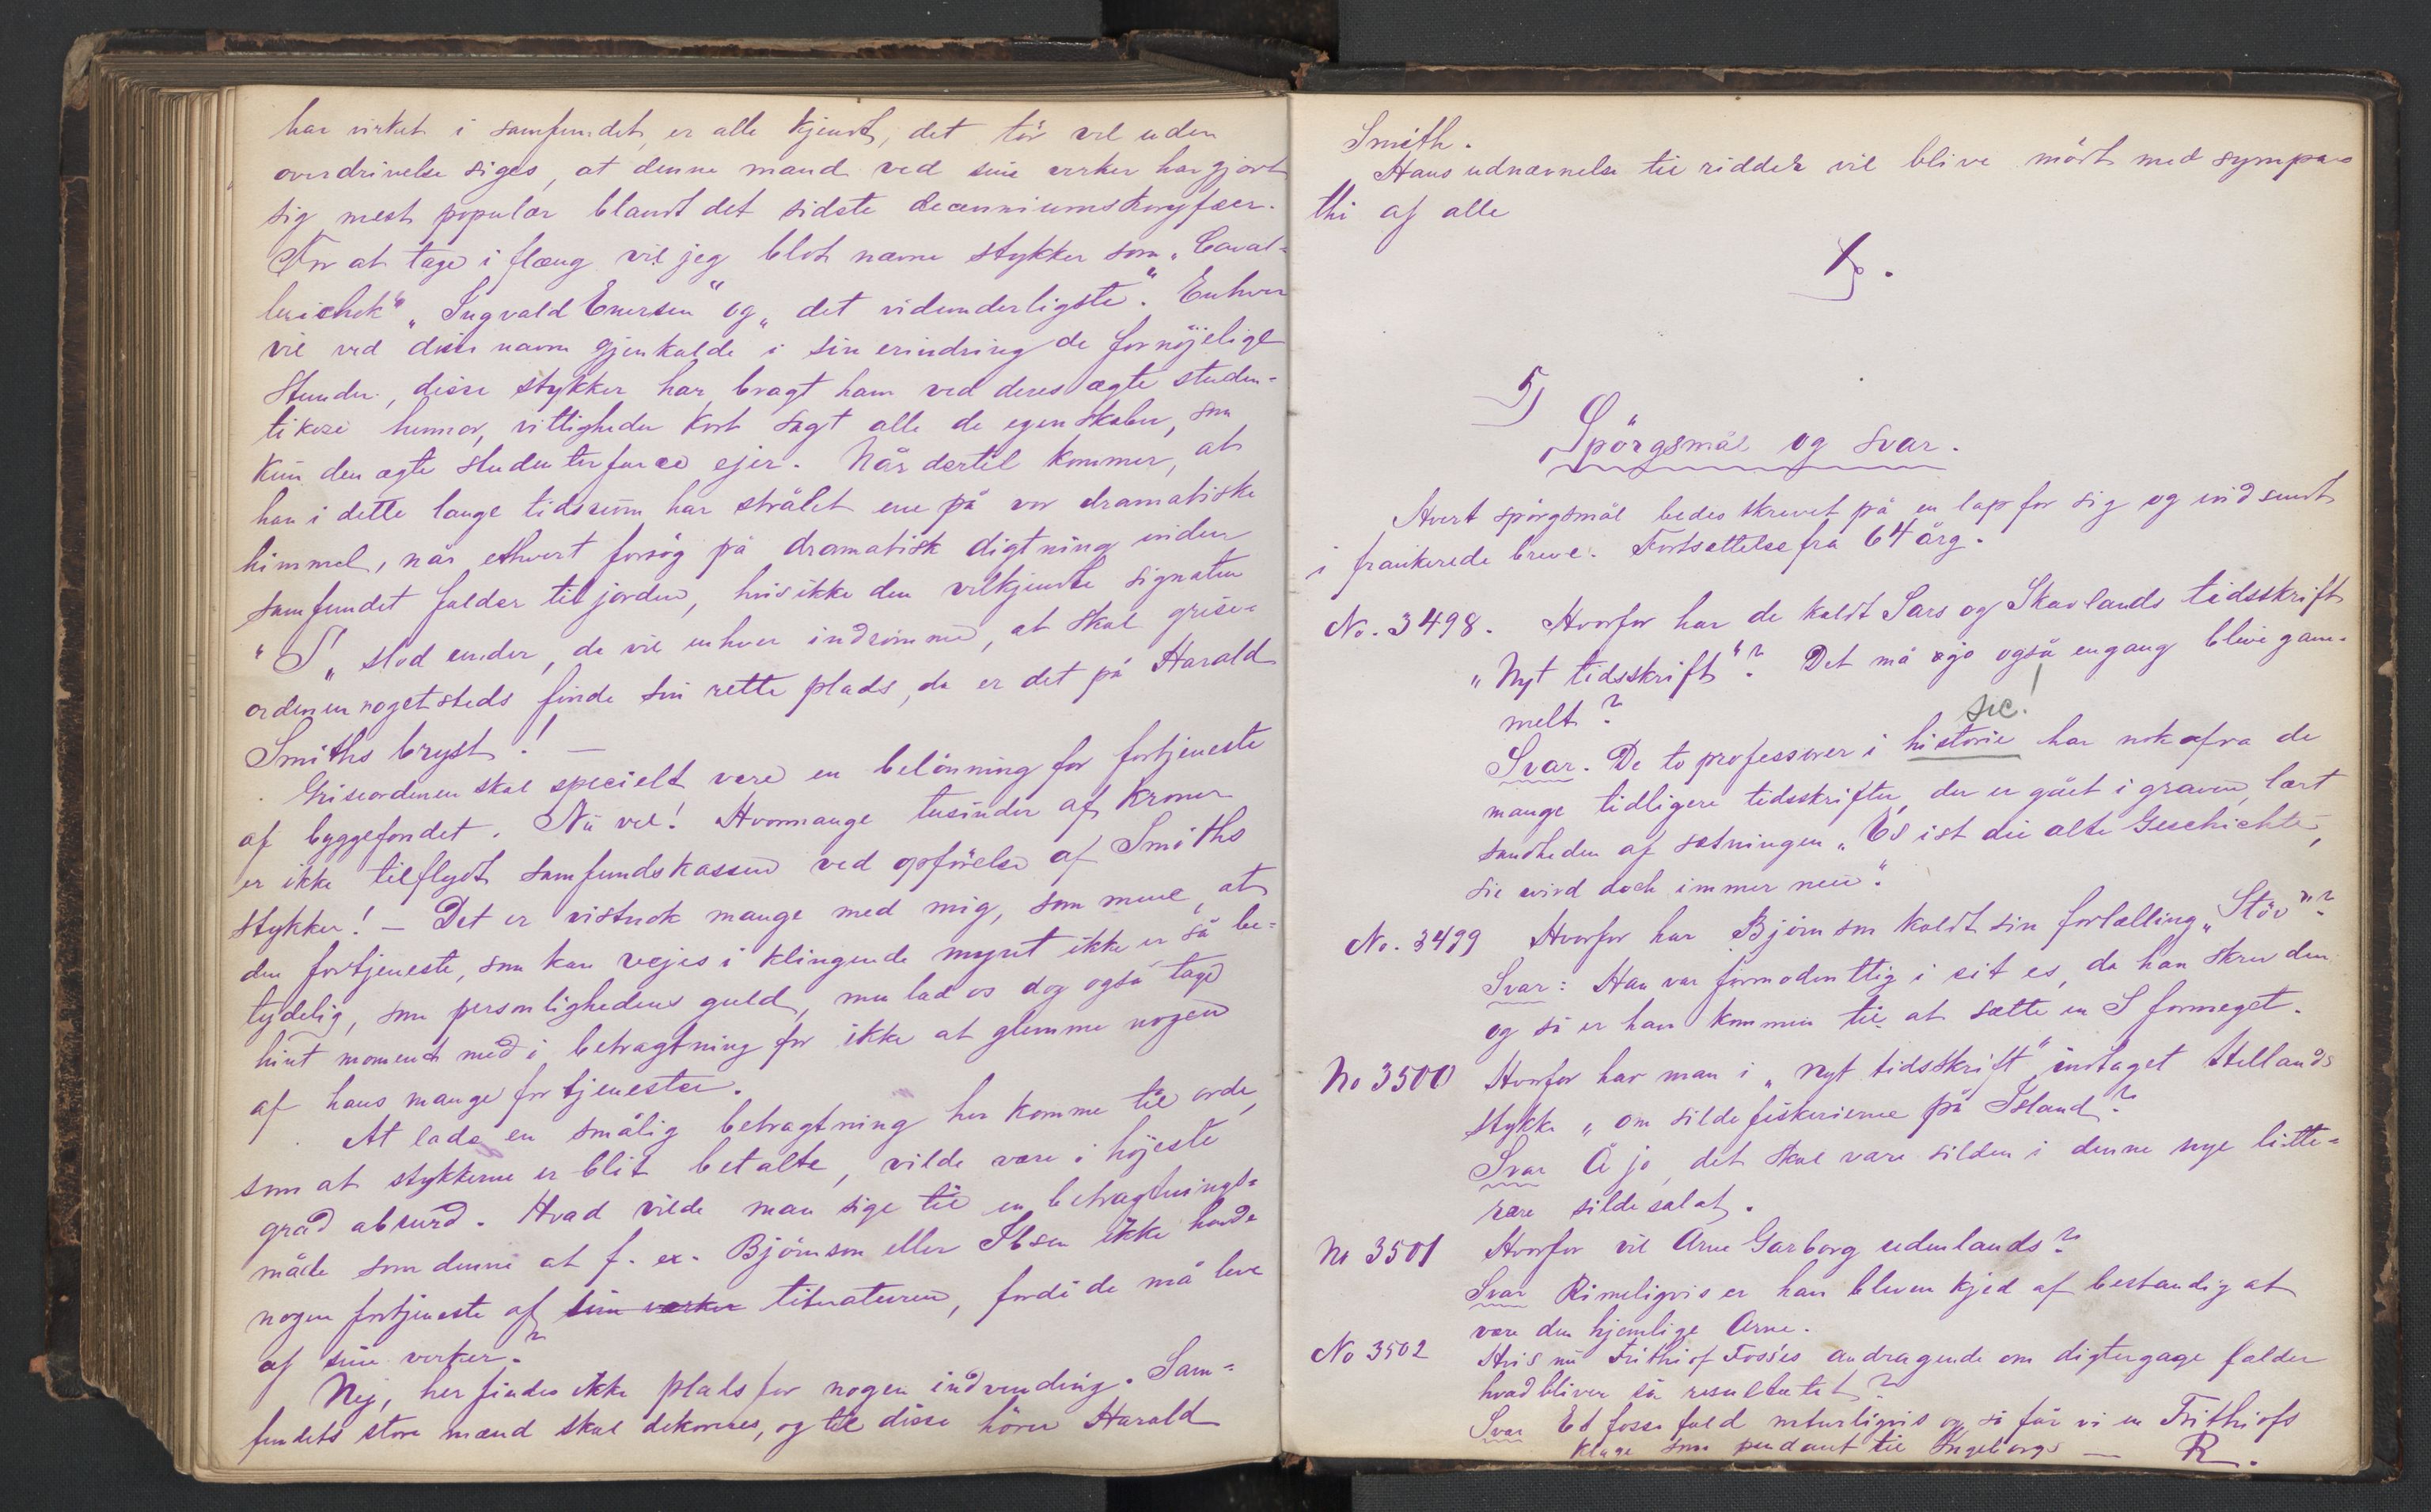 har virket i samfundet, er alle kjendt, det tör vel uden
overdrivelse siges, at denne mand ved sine verker har gjort
sig mest populær blandt det sidste decenniums koryfæer.
For at tage i flæng vil jeg blot nævne stykker som „Caval=
leichok“ „Ingvald Enersen“ og „det vidunderligste“. Enhver
vil ved disse navne gjenkalde i sin erindring de fornöjelige
stunder, disse stykker har bragt ham ved deres ægte studen=
tikose humor, vittigheder kort sagt alle de egenskaber, som
kun den ægte studenterfarce ejer. Når dertil kommer, at
han i dette lange tidsrum har strålet ene på vor dramatiske
himmel, når ethvert forsög på dramatisk digtning inden
samfundet falder til jorden, hvis ikke den velkjendte signatur
„S“ stod under, da vil enhver indrömme, at skal grise=
ordenen nogetsteds finde sin rette plads, da er det på Harald
Smiths bryst! —
Griseordenen skal specielt være en belönning for fortjeneste
af byggefondet. Nu vel! Hvormange tusinder af kroner
er ikke tilflydt samfundskassen ved opförelse af Smiths
stykker! — Det er vistnok mange med mig, som mene, at
den fortjeneste, som kan vejes i klingende mynt ikke er så be=
tydelig, som personlighedens guld, men lad os dog også tage
hint moment med i betragtning for ikke at glemme nogen
af hans mange fortjenester.
At lade en smålig betragtning her komme til orde,
som at stykkerne er blit betalte, vilde være i höjeste
grad absurd. Hvad vilde man sige til en betragtnings=
måde som denne at f. ex. Björnson eller Ibsen ikke havde
nogen fortjeneste af sine verker literaturen, fordi de må leve
af sine verker?
Nej, her findes ikke plads for nogen indvending. Sam=
fundets store mænd skal dekoreres, og til disse hörer Harald
Smith.
Hans udnævnelse til ridder vil blive mödt med sympa=
thi af alle
5)
Spörgsmål og svar.
Hvert spörgsmål bedes skrevet på en lap for sig og indsendt
i frankerede breve. Fortsættelse fra 64 årg.
No. 3498. Hvorfor har de kaldt Sars og Skavlands tidsskrift
„Nyt tidsskrift“? Det må jo også engang blive gam=
melt?
sic!
Svar. De to professorer i historie har nok afra de
mange tidligere tidsskrifter, der er gået i graven, lært
sandheden af sætningen „Es ist die alte Geschichte,
sie wird doch immer neu“.
No. 3499 Hvorfor har Björnson kaldt sin fortælling „Stöv“?
Svar: Han var formodentlig i sit es, da han skrev den
og så er han kommen til at sætte en S formeget.
No 3500 Hvorfor har man i „nyt tidsskrift“ indtaget Hellands
stykke „om sildefiskerierne på Island?
Svar Å jo, det skal være silden i denne nye litte=
rære silde salat.
No 3501 Hvorfor vil Arne Garborg udenlands?
Svar Rimeligvis er han bleven kjed af bestandig at
være den hjemlige Arne.
No 3502 Hvis nu Frithiof Fosses andragende om digtergage falder
hvad bliver så resultatet?
Svar Et fosse fald naturligvis og så får vi en Frithiofs
klage som pendant til Ingeborgs — R.